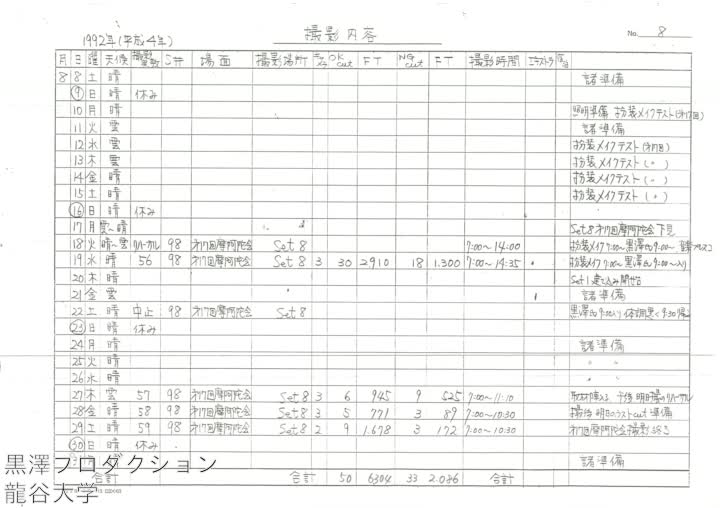 1992年(平成4年) 撮影内容 No. 8
月 日 曜 天候 撮影日数 シーン 場面 撮影場所 OK cut FT NG cut FT 撮影時間 エキストラ
8 8 土 晴 諸準備
9 日 晴 休み
10 月 晴 照明準備 扮装メイクテスト(オ17回)
11 火 雲 諸準備
12 水 雲 扮装メイクテスト(オ17回)
13 木 雲 扮装メイクテスト(〃)
14 金 晴 扮装メイクテスト(〃)
15 土 晴 扮装メイクテスト(〃)
16 日 晴 休み
17 月 雲〜晴 Set8オ17回摩阿陀会下見
18 火 晴〜雲 リハーサル 98 オ17回摩阿陀会 Set 8 7:00〜14:00 扮装メイク7:00〜黒澤氏9:00〜
19 水 晴 56 98 オ17回摩阿陀会 Set 8 3 30 2.910 18 1.300 7:00〜14:35 扮装メイク7:00〜黒澤氏9:00〜入り
20 木 晴 Set1建て込み開始
21 金 雲 諸準備
22 土 晴 中止 98 オ17回摩阿陀会 Set 8 黒澤氏9:00入り 体調悪く9:30帰
23 日 晴 休み
24 月 晴 諸準備
25 火 晴 〃 〃
26 水 晴 〃 〃
27 木 雲 57 98 オ17回摩阿陀会 Set 8 3 6 945 9 525 9:00〜11:10 取材陣入る、午後 明日撮のリハーサル
28 金 晴 58 98 オ17回摩阿陀会 Set 8 3 5 771 3 89 9:00〜10:30 撮後 明日のラストcut準備
29 土 晴 59 98 オ17回摩阿陀会 Set 8 2 9 1.678 3 172 9:00〜10:30 オ17回摩阿陀会撮影終了
30 日 晴 休み
諸準備
合計 合計 50 6304 33 2.086 合計
黒澤プロダクション
龍谷大学